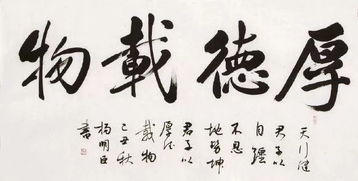 厚德載物
天行健
君子以
自強
不息
地勢坤
君子以
厚德
載物
己丑秋
楊明臣
書